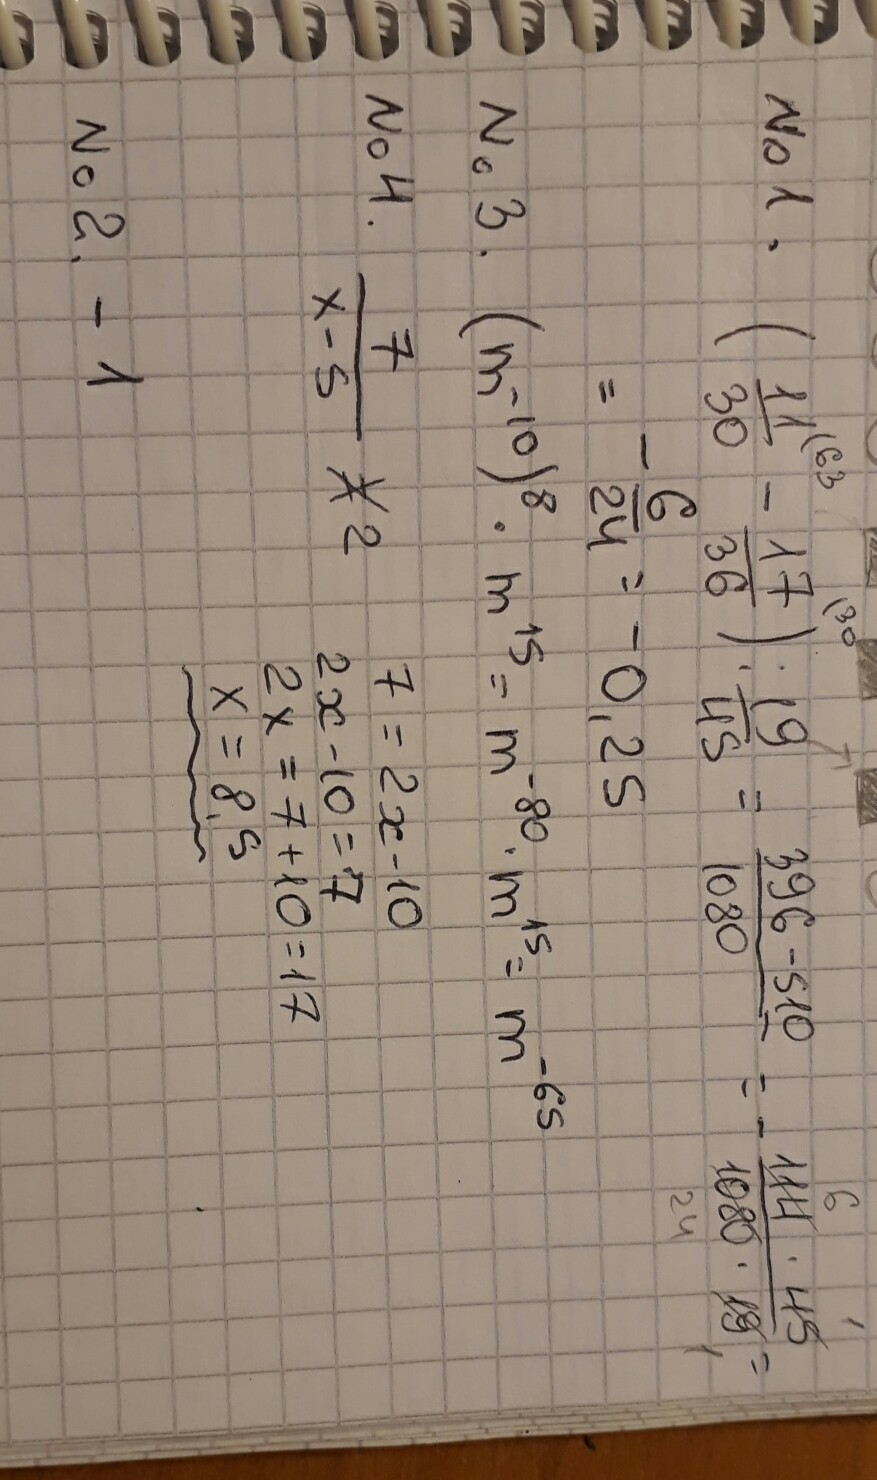 No 1. (11/30 (63 - 17/36 (30) : 19/45 = 396 - 510/1080 = - 114 · 45/1080 · 19 =
6 1
24 1
= - 6/24 = - 0,25
No 3. (m^-10)^8 · m^15 = m^-80 · m^15 = m^-65
No 4. 7/x - 5 2 7 = 2x - 10
2x - 10 = 7
2x = 7 + 10 = 17
x = 8,5
No 2. - 1